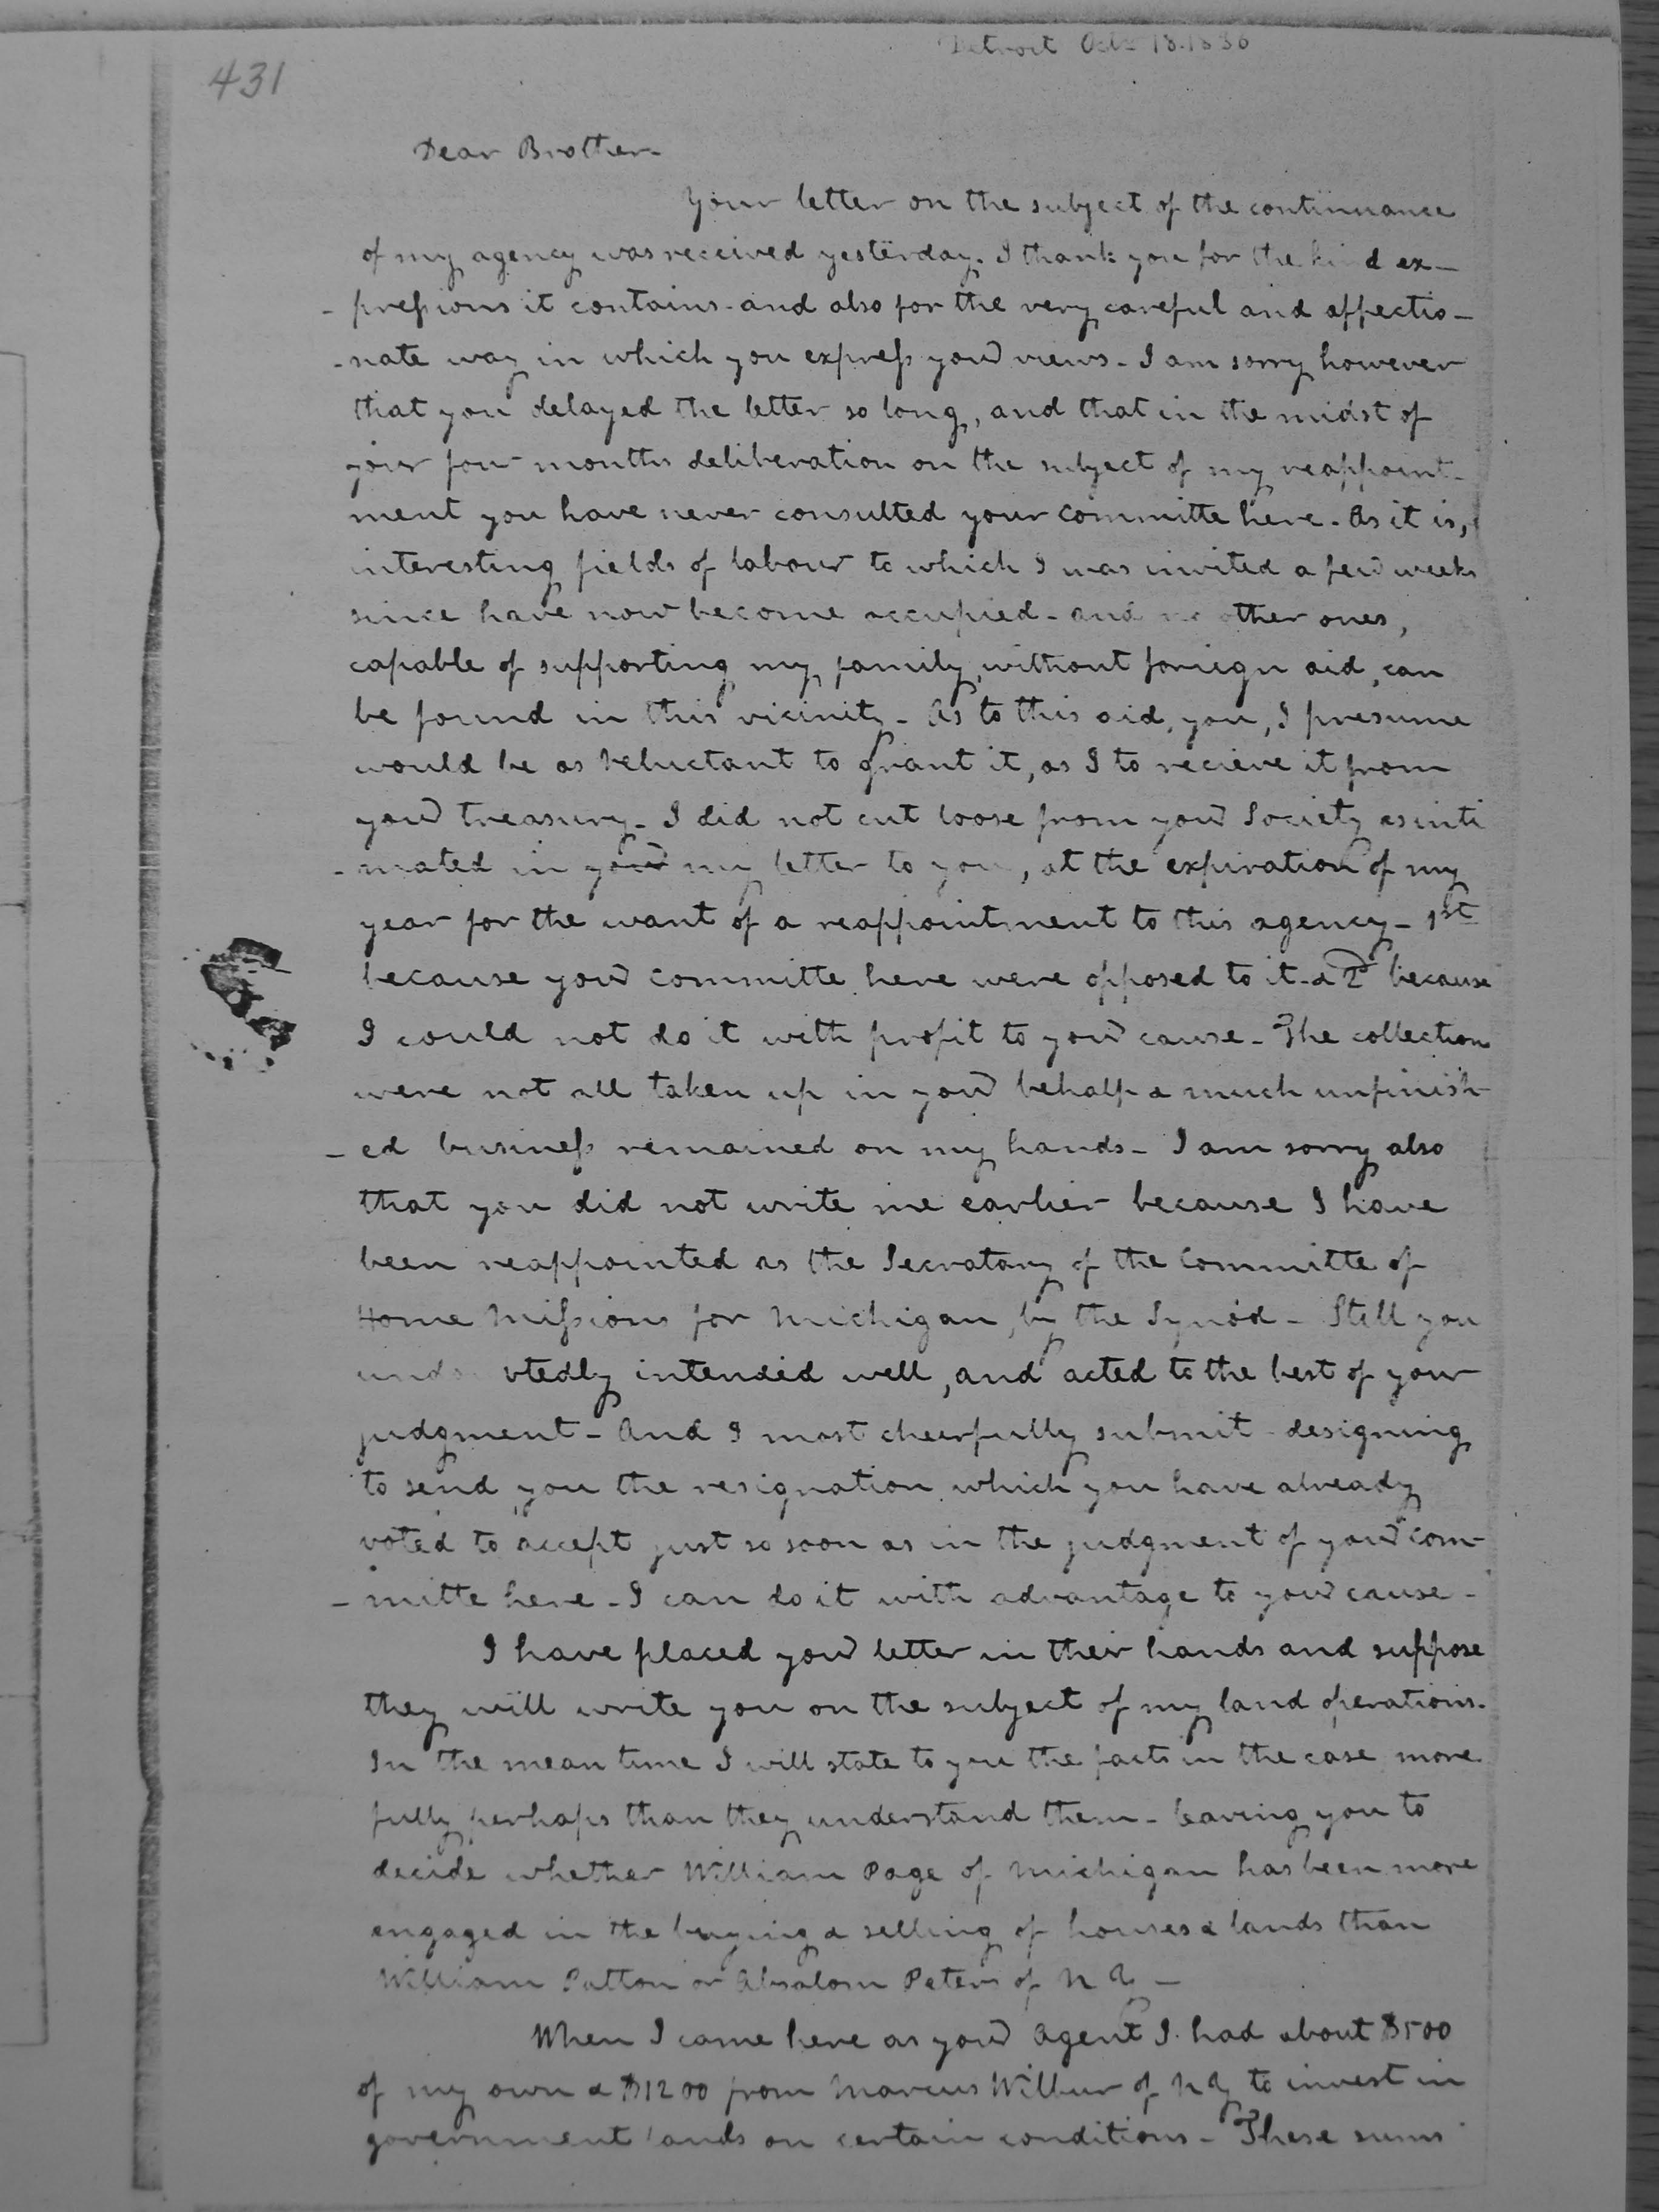 Detroit Octr 18. 1836
431
Dear Brother-
Your letter on the subject of the continuance
of my agency was received yesterday. I thank you for the kind ex-
-pressions it contains - and also for the very careful and affectio-
-nate way in which you express your views - I am sorry however
that you delayed the letter so long, and that in the midst of
your four months deliberation on the subject of my reappoint-
ment you have never consulted your committe here. As it is,
interesting fields of labour to which I was invited a few weeks
since have now become occupied - and no other ones,
capable of supporting my family, without foriegn aid, can
be found in this vicinity - As to this aid, you, I presume
would be as reluctant to grant it, as I to recieve it from
your treasury - I did not cut loose from your Society as inti
-mated in your my letter to you, at the expiration of my
year for the want of a reappointment to this agency - 1st
because your committe here were opposed to it - & 2d because
I could not do it with profit to your cause - The collections
were not all taken up in your behalf & much unfinish-
-ed business remained on my hands - I am sorry also
that you did not write me earlier because I have
been reappointed as the Secratary of the Committe of
Home Missions for Michigan, by the Synod - Still you
undo btedly intended well, and acted to the best of your
judgment - And I most cheerfully submit - designing
to send you the resignation which you have already
voted to accept just so soon as in the judgment of your com-
-mitte here - I can do it with advantage to your cause -
I have placed your letter in their hands and suppose
they will write you on the subject of my land operations.
In the mean time I will state to you the facts in the case more
fully perhaps than they understand them - leaving you to
decide whether William Page of Michigan has been more
engaged in the buying & selling of houses & lands than
William Patton or Absalom Peters of N Y -
When I came here as your Agent I had about $500
of my own & $1200 from Marcus Wilbur of N Y to invest in
government lands on certain conditions - These sums